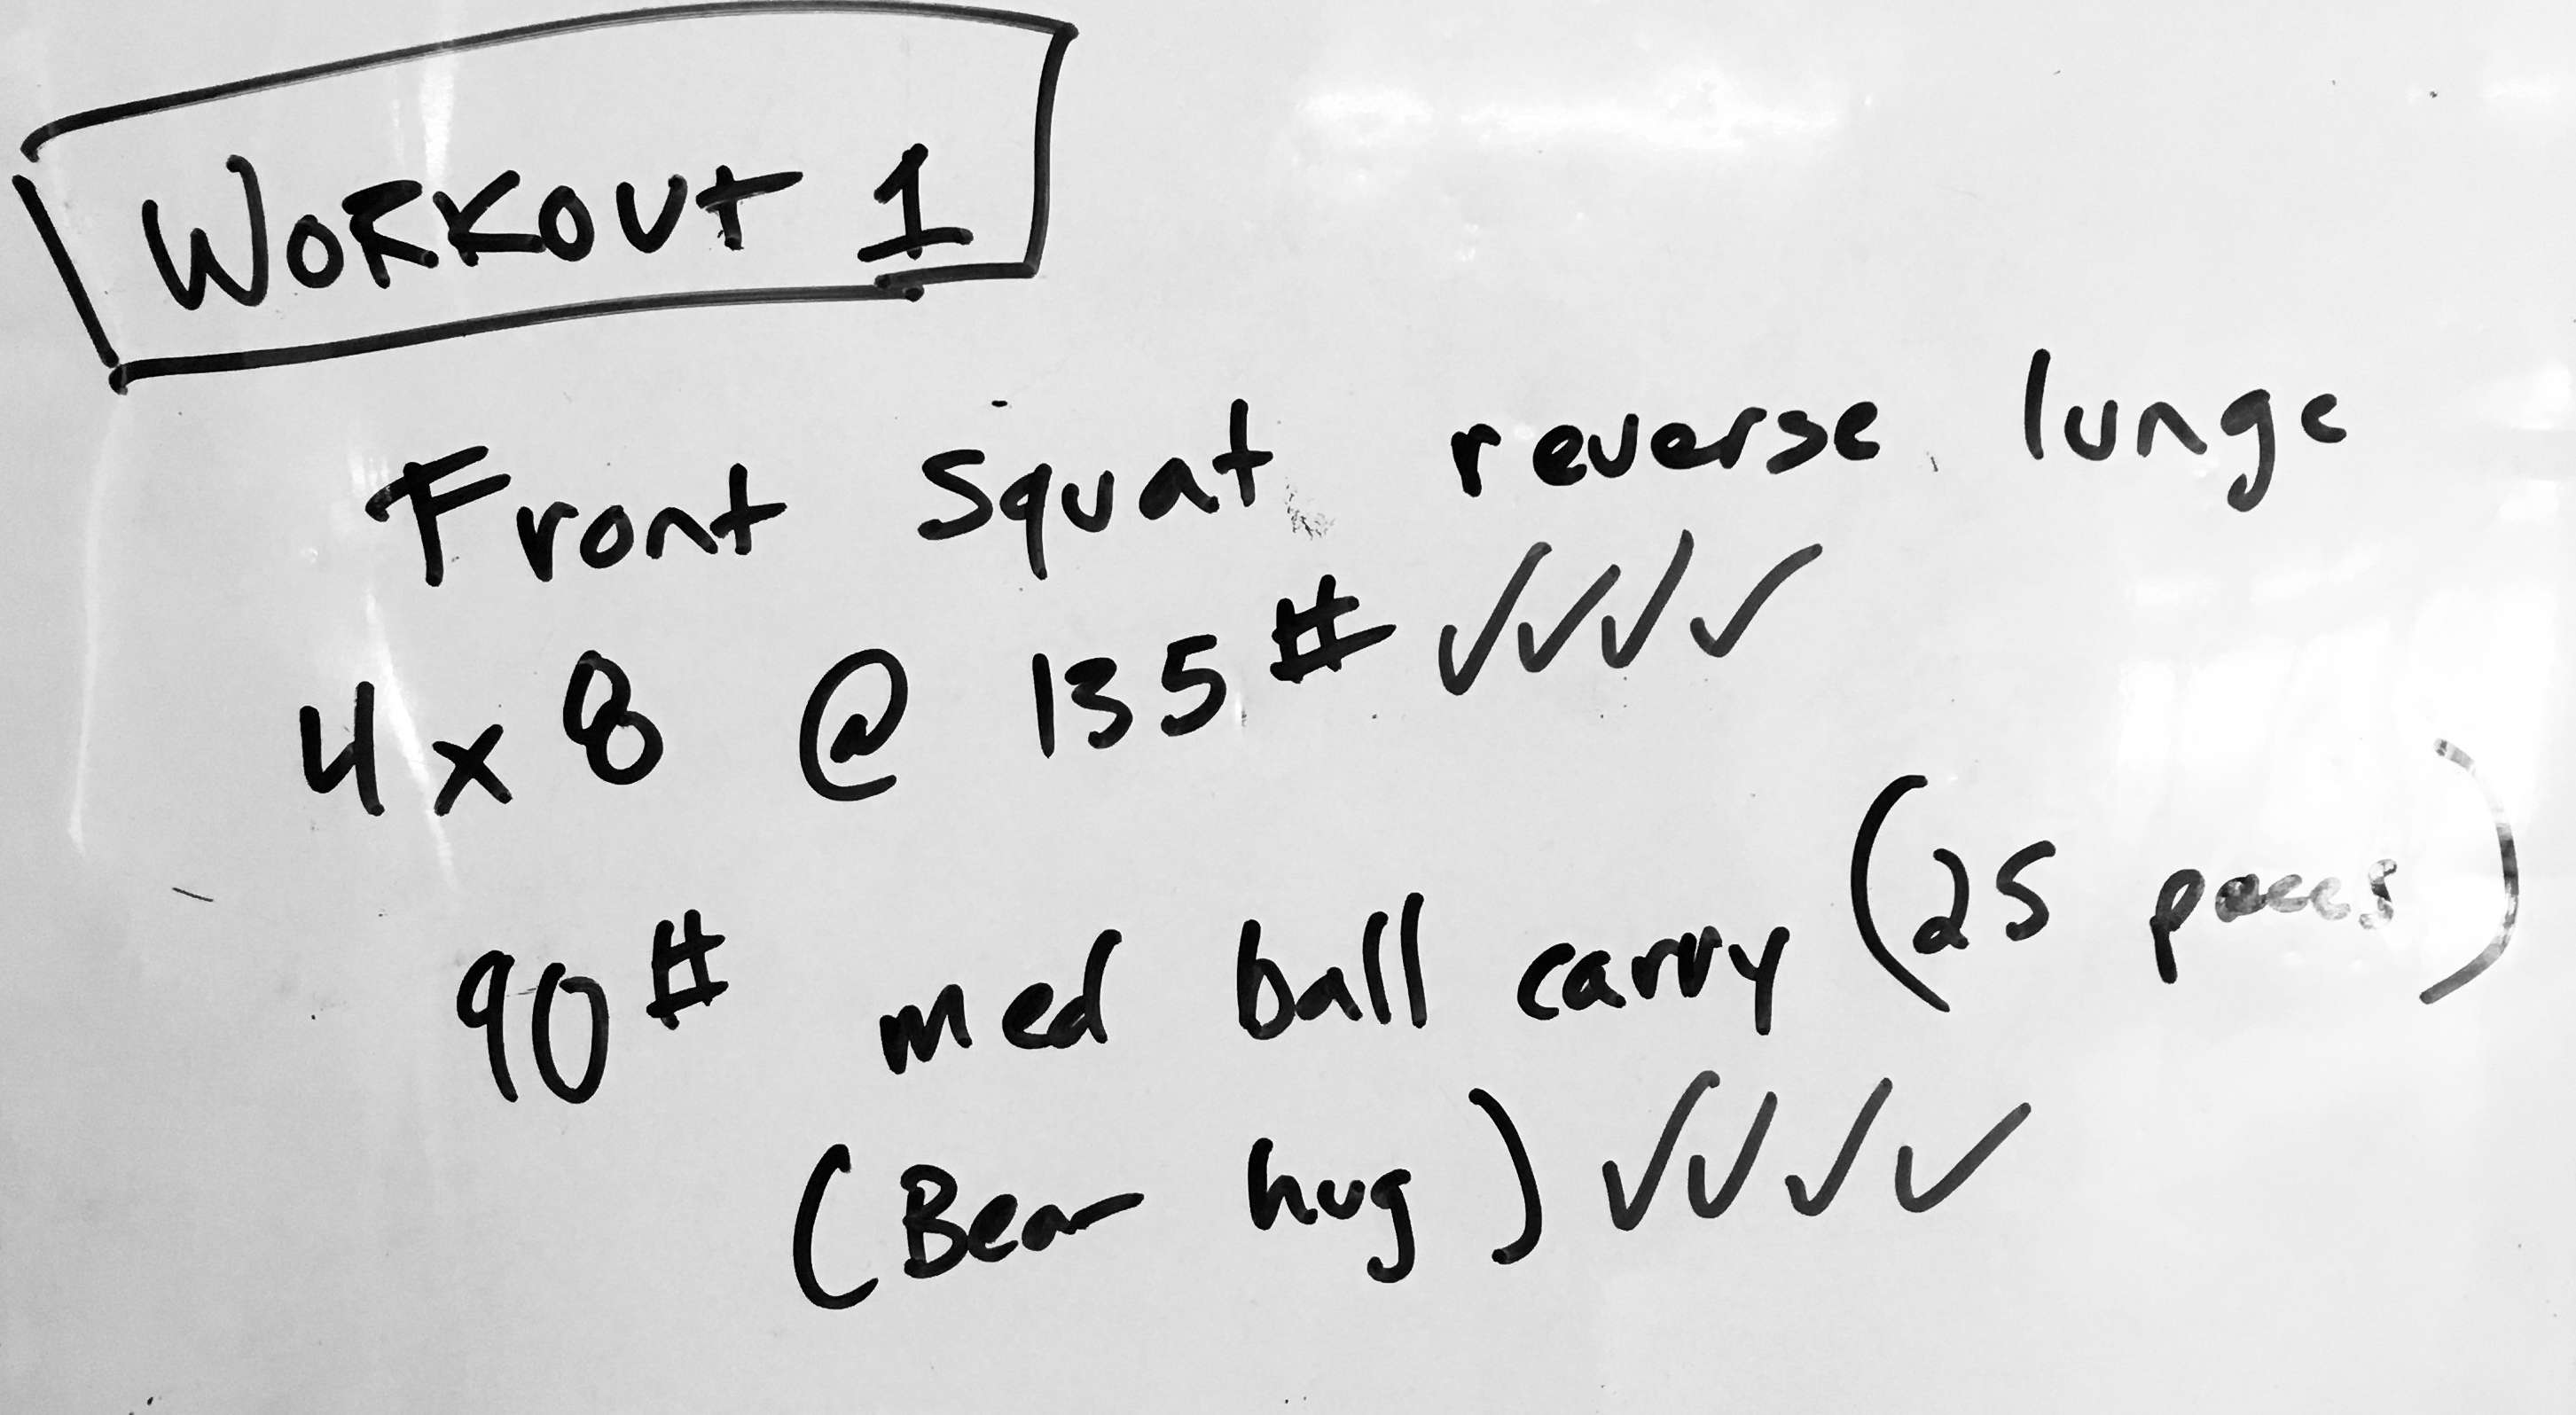 WORKOUT 1
Front Squat reverse lunge
4 x 8 @ 135 # ✓✓✓✓
90 # med ball carry (25 paces)
(Bear hug) ✓✓✓✓